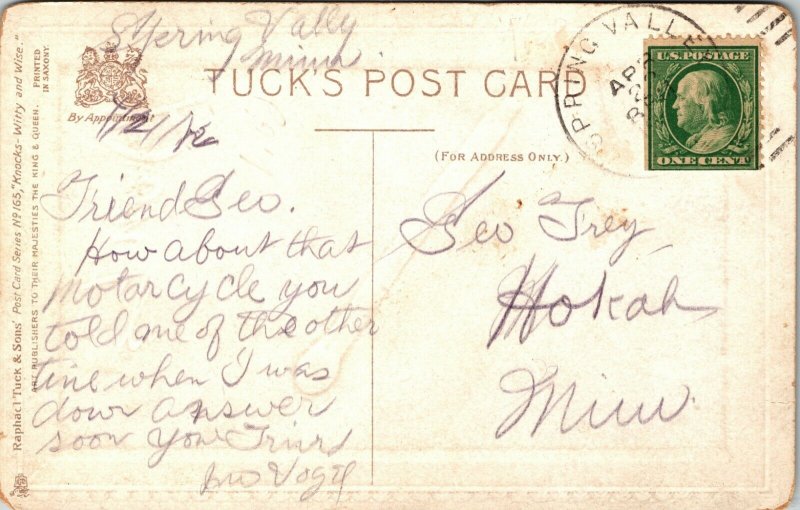 Spring Vally
Minn
TUCK'S POST CARD
By Appointment
(FOR ADDRESS ONLY.)
SPRING VALLEY
APR
U.S. POSTAGE
ONE CENT
Friend Geo.
How about that
motarcycle you
told me of the other
time when I was
down answer
soon your Friend
Jno Vogel
Geo Frey
Hokah
Minn.
Raphael Tuck & Sons' Post Card Series Nº 165, "Knocks - Witty and Wise."
ART PUBLISHERS TO THEIR MAJESTIES THE KING & QUEEN.
PRINTED
IN SAXONY.